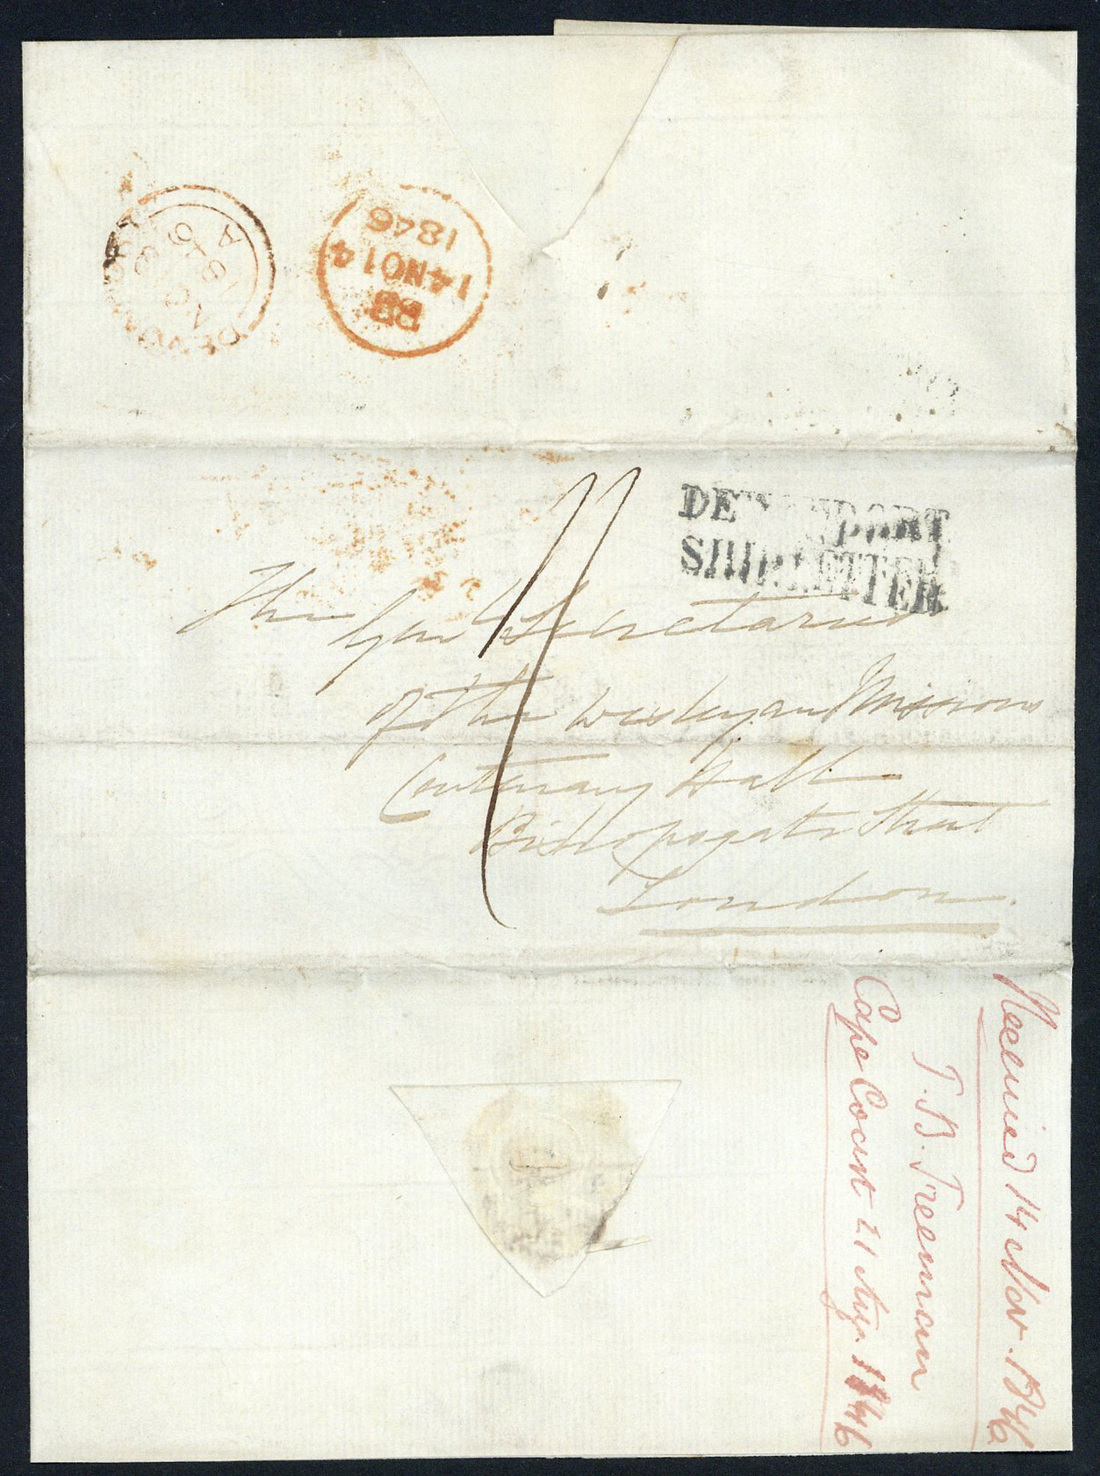 1846
14 NO 14
BB
A
1846
DEVONPORT
DEVONPORT
SHIP LETTER
The
Gen Secretaries
of the Wesleyan Missions
Centenary Hall
Bishopsgate Street
London.
Received 14 Nov. 1846
T. B. Freeman
Cape Coast 21 Aug. 1846